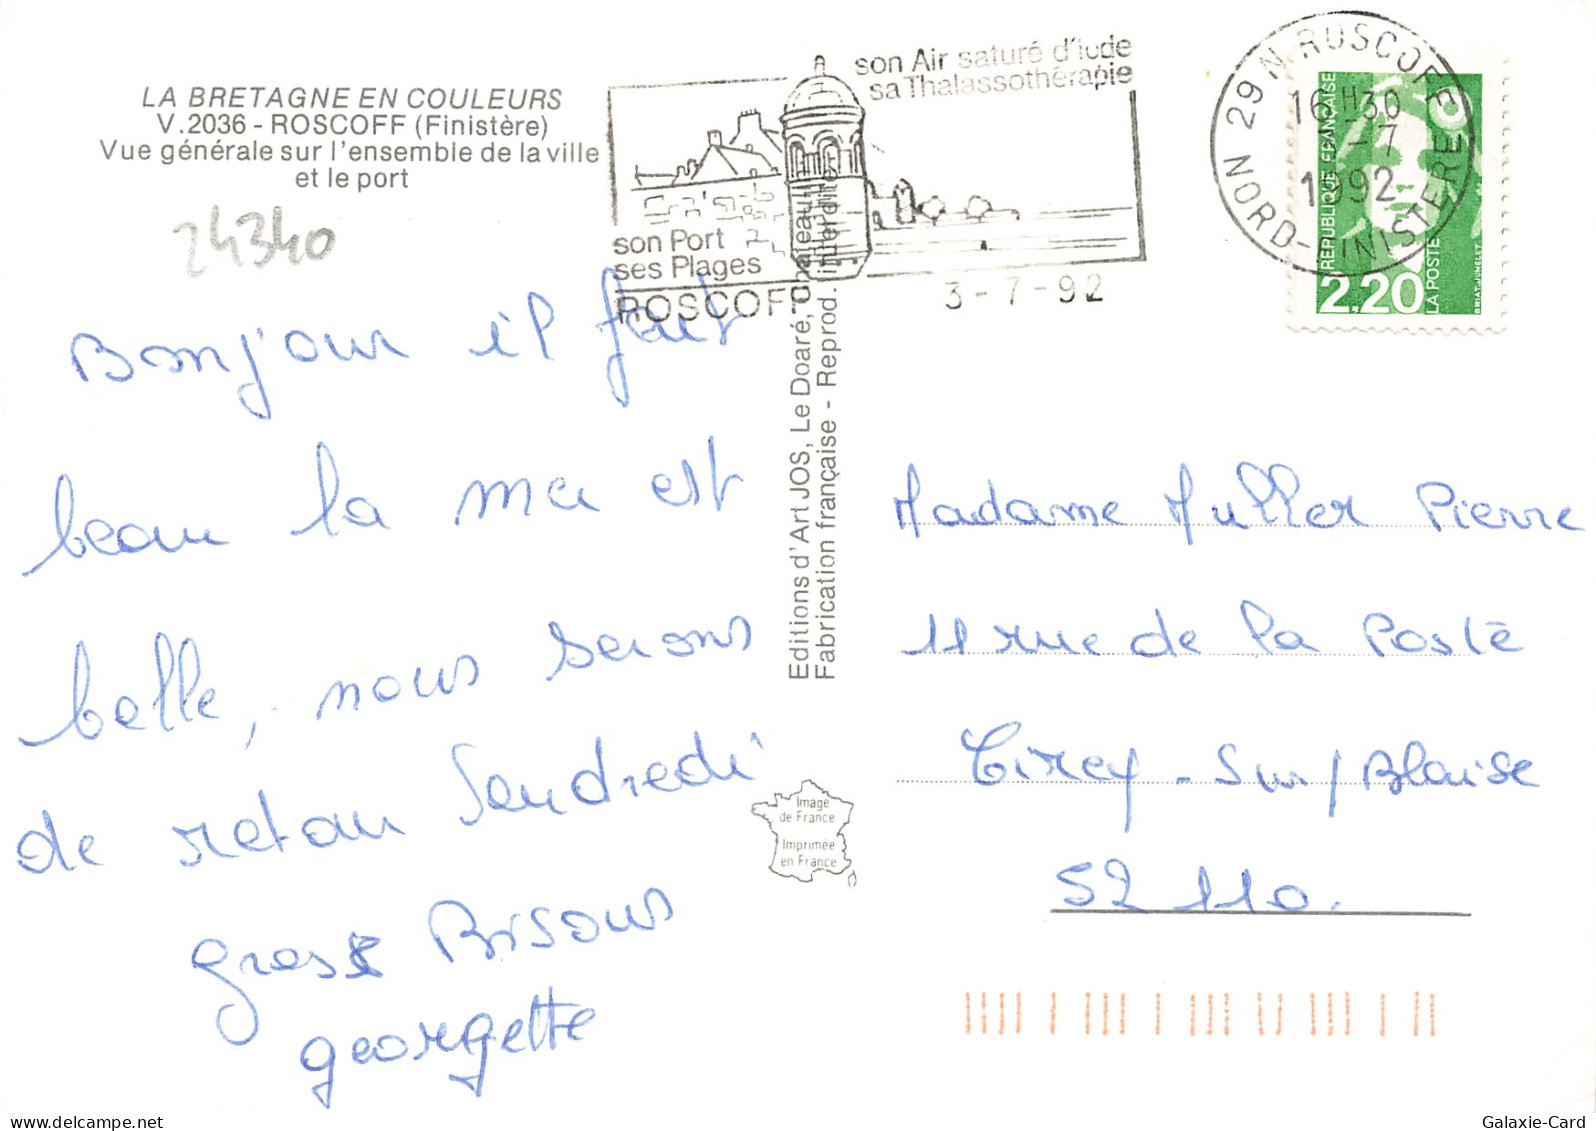 LA BRETAGNE EN COULEURS
V.2036 - ROSCOFF (Finistère)
Vue générale sur l'ensemble de la ville
et le port
24340
son Air saturé d'iode
sa Thalassothérapie
son Port
ses Plages
ROSCOFF
3-7-92
29 N ROSCOFF
16H30
3-7
1992
NORD-FINISTERE
REPUBLIQUE FRANÇAISE
2,20
LA POSTE
BRIAT-JUMELET
Bonjour il fait
beau la mer est
belle, nous serons
de retour Vendredi
gros Bisous
georgette
Editions d'Art JOS, Le Doaré, Châteaulin
Fabrication française - Reprod. interdite
Image
de France
Imprimée
en France
Madame Muller Pierre
11 rue de la Poste
Cirey - Sur / Blaise
52 110.
Galaxie-Card